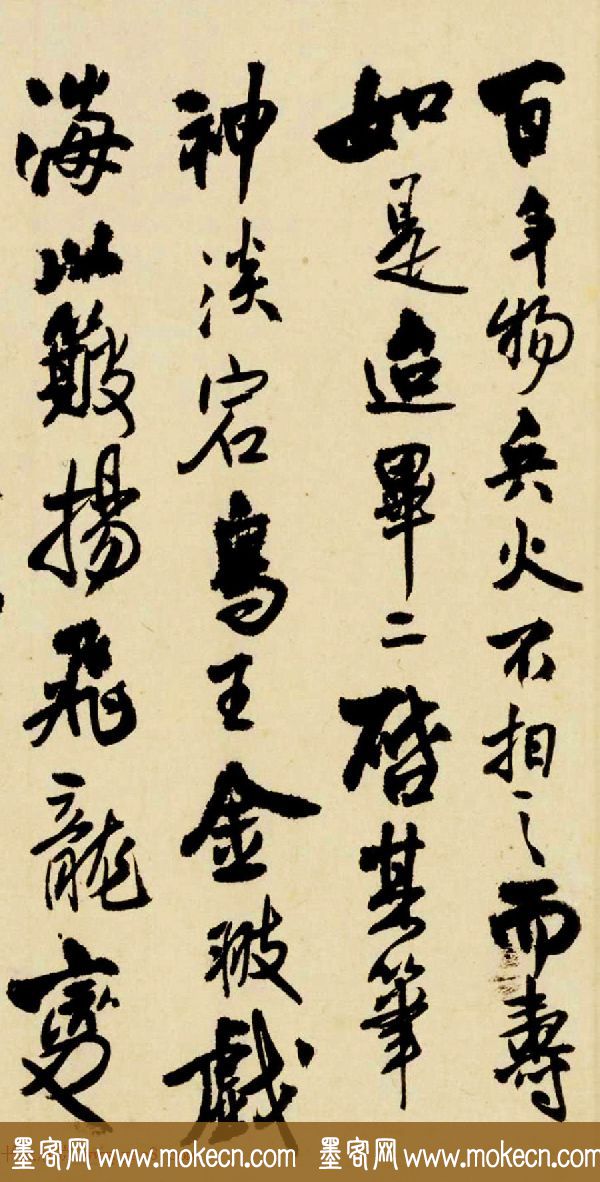 百年物兵火不相之而壽
如是迨畢二啓其筆
神淡宕鳥王金翅戲
海以簸揚飛龍變
墨客网 www.mokecn.com 墨客网 www.mokecn.com